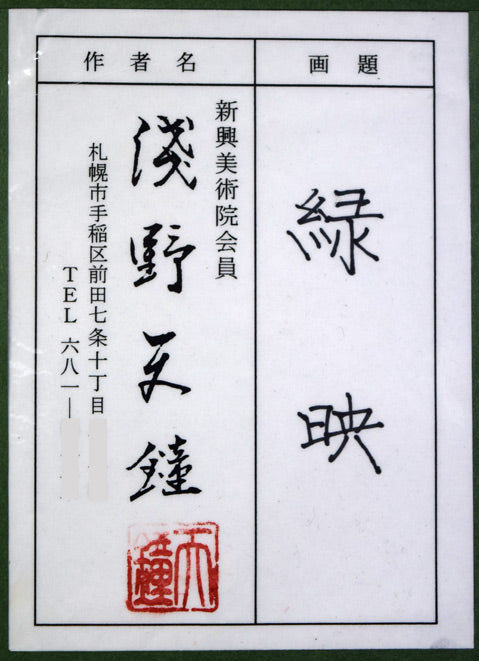 画題
緑映
作者名
新興美術院会員
淺野天鐘
札幌市手稲区前田七条十丁目
TEL 六八一―
天鐘